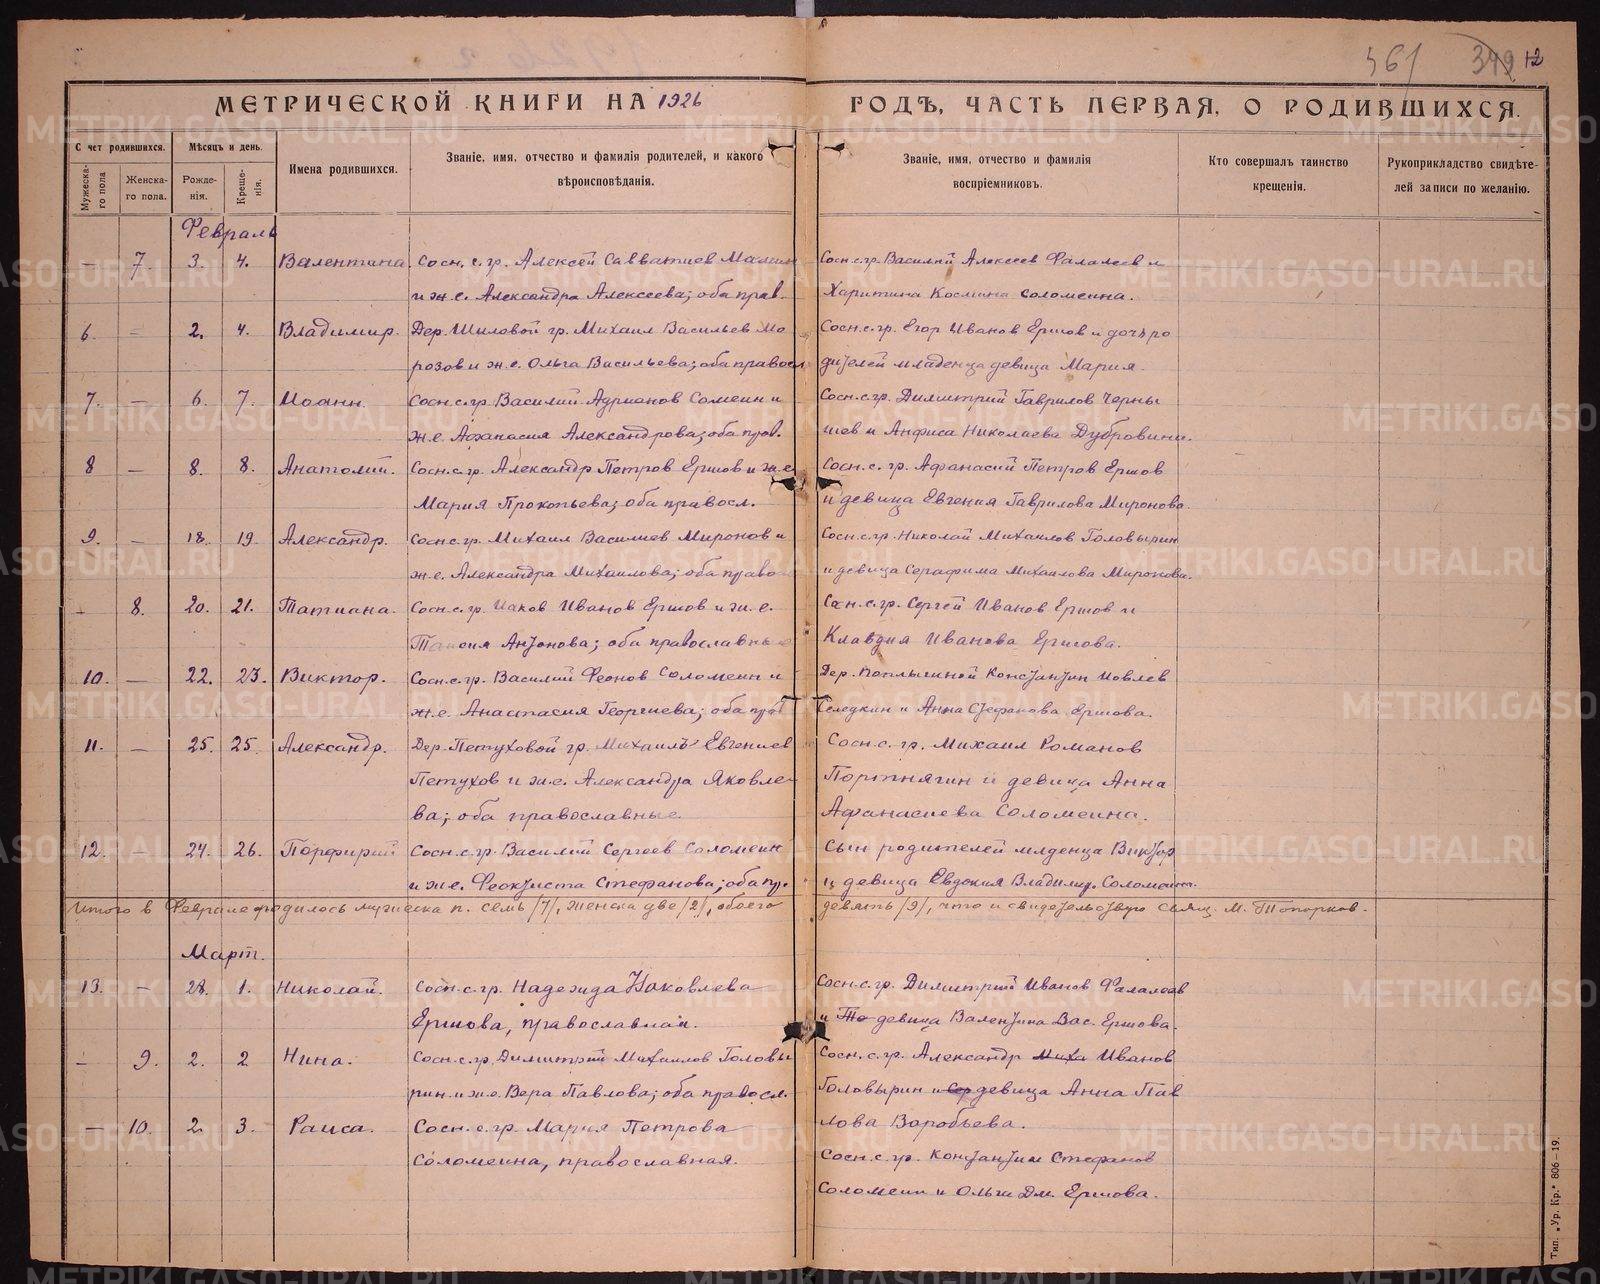 561 349 12
МЕТРИЧЕСКОЙ КНИГИ НА 1926 ГОДЪ, ЧАСТЬ ПЕРВАЯ, О РОДИВШИХСЯ.
С чет родившихся. Мѣсяцъ и день. Имена родившихся. Званіе, имя, отчество и фамилія родителей, и какого вѣроисповѣданія. Званіе, имя, отчество и фамилія воспріемниковъ. Кто совершалъ таинство крещенія. Рукоприкладство свидѣтелей записи по желанію.
Мужеска-го пола Женска-го пола. Рожде-нія. Креще-нія.
Февраль
— 7. 3. 4. Валентина. Сосн. с. гр. Алексей Савватиев Мамин Сосн. с. гр. Василий Алексеев Фалалеев и
и ж. е. Александра Алексеева; оба прав. Харитина Космина Соломеина.
6. — 2. 4. Владимир. Дер. Шиловой гр. Михаил Васильев Мо Сосн. с. гр. Егор Иванов Ершов и дочь ро
розов и ж. е. Ольга Васильева; оба правосл дителей младенца девица Мария.
7. — 6. 7. Иоанн. Сосн. с. гр. Василий Адрианов Сомеин и Сосн. с. гр. Димитрий Гаврилов Черны
ж. е. Афанасия Александрова; оба прав. шев и Анфиса Николаева Дубровина.
8 — 8. 8. Анатолий. Сосн. с. гр. Александр Петров Ершов и ж. е. Сосн. с. гр. Афанасий Петров Ершов
Мария Прокопьева; оба правосл. и девица Евгения Гаврилова Миронова.
9. — 18. 19. Александр. Сосн. с. гр. Михаил Василиев Миронов и Сосн. с. гр. Николай Михаилов Головырин
ж. е. Александра Михаилова; оба право и девица Серафима Михаилова Миронова.
— 8. 20. 21. Татиана. Сосн. с. гр. Иаков Иванов Ершов и ж. е. Сосн. с. гр. Сергей Иванов Ершов и
Таисия Антонова; оба православные Клавдия Иванова Ершова.
10. — 22. 23. Виктор. Сосн. с. гр. Василий Феонов Соломеин и Дер. Константин Иовлев
ж. е. Анастасия Георгиева; оба прав Селедкин и Анна Стефанова Ершова.
11. — 25. 25. Александр. Дер. Петуховой гр. Михаилъ Евгениев Сосн. с. гр. Михаил Романов
Петухов и ж. е. Александра Яковле- Портнягин и девица Анна
ва; оба православные. Афанасиева Соломеина.
12. — 24. 26. Порфирий Сосн. с. гр. Василий Сергеев Соломеин Сын родителей млденца Виктор
и ж. е. Феоктиста Стефанова; оба пр. и девица Евдокия Владимир. Соломеин.
Итого в Феврале родилось мужеска п. семь /7/, женска две /2/, обоего девять /9/, что и свидетельствую свящ. М. Топорков.
Март.
13. — 28. 1. Николай. Сосн. с. гр. Надежда Иаковлева Сосн. с. гр. Димитрий Иванов Фалалеев
Ершова, православная. и То девица Валентина Вас. Ершова.
— 9. 2. 2 Нина. Сосн. с. гр. Димитрий Михаилов Головы Сосн. с. гр. Александр Миха Иванов
рин и ж. е. Вера Павлова; оба правосл. Головырин и девица Анна Пав
— 10. 2. 3. Раиса. Сосн. с. гр. Мария Петрова лова Воробьева.
Соломеина, православная. Сосн. с. гр. Константин Стефанов
Соломеин и Ольга Дм. Ершова.
Тип. „Ур. Кр.“ 806–19.
METRIKI.GASO-URAL.RU